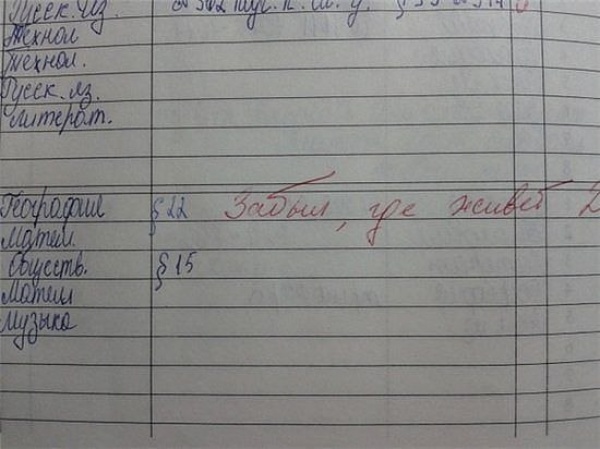 Русск. яз. №302 § 33
Технол
Технол.
Русск. яз.
Литерат.
География § 22 Забыл, где живёт 2
Матем.
Обществ. § 15
Матем
Музыка